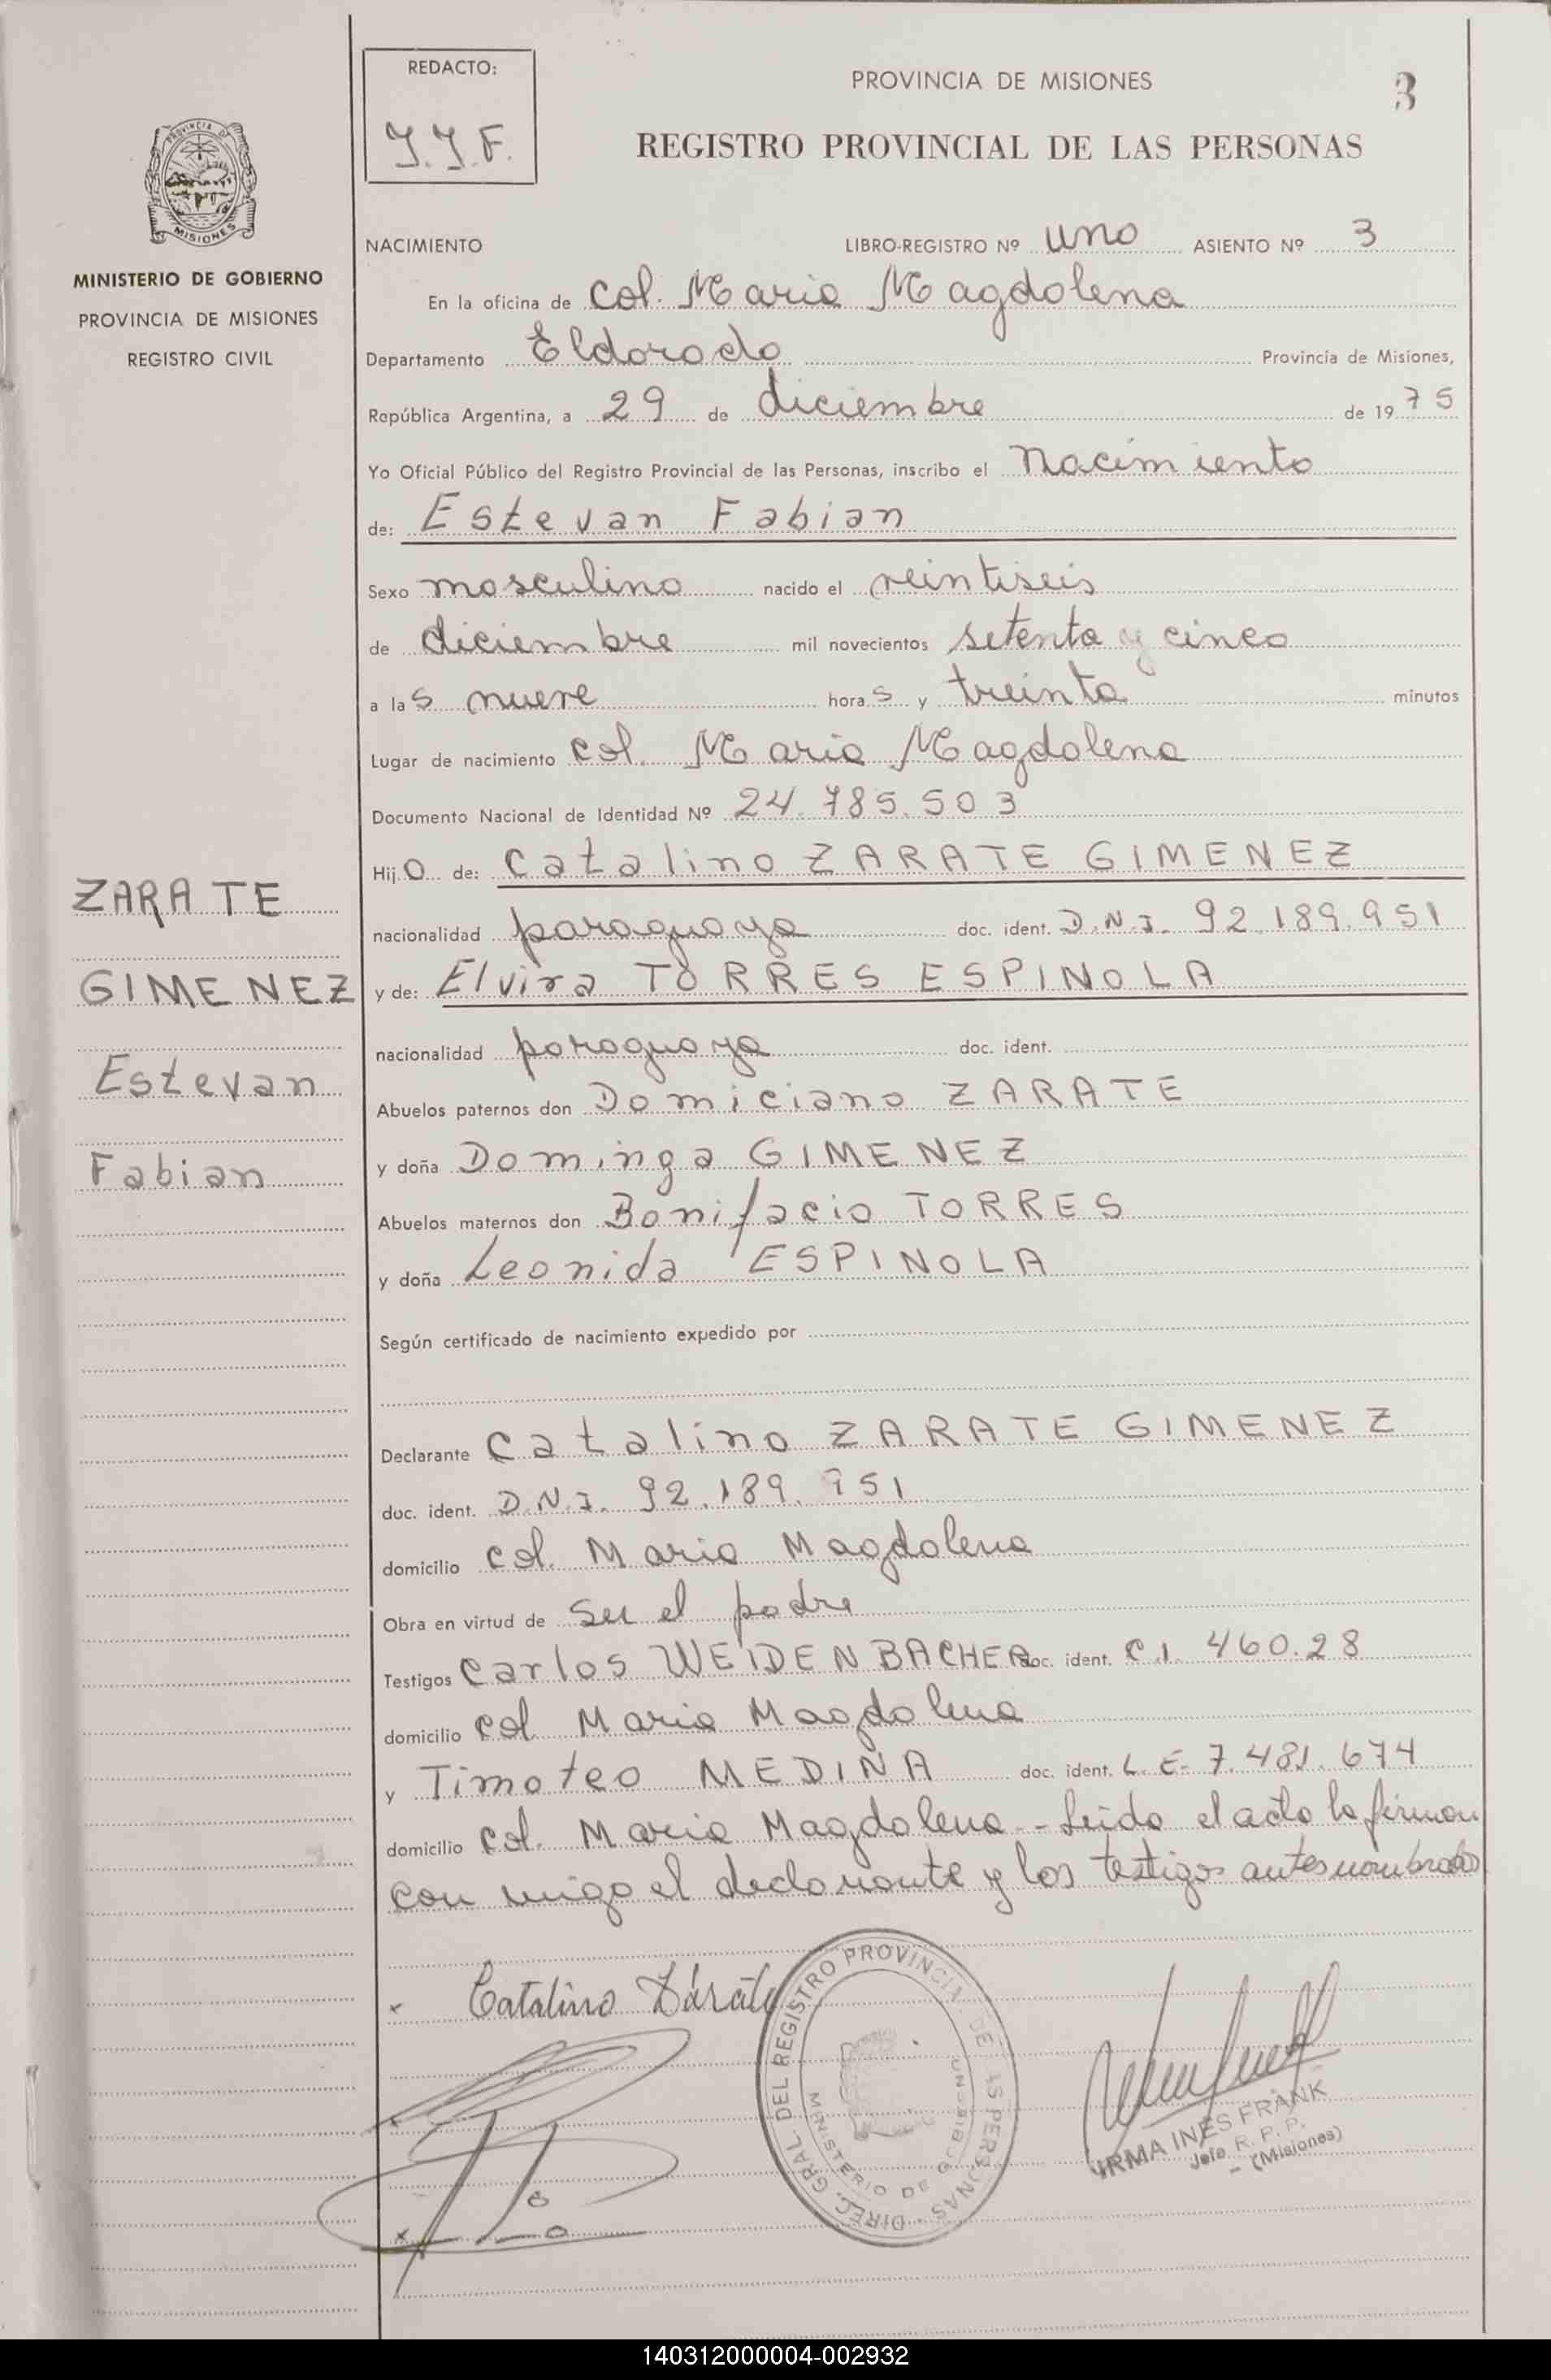 REDACTO:
J.J.F.
PROVINCIA DE MISIONES
3
REGISTRO PROVINCIAL DE LAS PERSONAS
PROVINCIA DE
MISIONES
MINISTERIO DE GOBIERNO
PROVINCIA DE MISIONES
REGISTRO CIVIL
NACIMIENTO LIBRO-REGISTRO Nº uno ASIENTO Nº 3
En la oficina de Col. Maria Magdalena
Departamento Eldorado Provincia de Misiones,
República Argentina, a 29 de diciembre de 1975
Yo Oficial Público del Registro Provincial de las Personas, inscribo el nacimiento
de: Estevan Fabian
Sexo masculino nacido el veintiseis
de diciembre mil novecientos setenta y cinco
a las nueve horas y treinta minutos
Lugar de nacimiento Col. Maria Magdalena
Documento Nacional de Identidad Nº 24.785.503
Hijo de: Catalino ZARATE GIMENEZ
nacionalidad paraguaya doc. ident. D.N.I. 92.189.951
y de: Elvira TORRES ESPINOLA
nacionalidad paraguaya doc. ident.
Abuelos paternos don Domiciano ZARATE
y doña Dominga GIMENEZ
Abuelos maternos don Bonifacio TORRES
y doña Leonida ESPINOLA
Según certificado de nacimiento expedido por
Declarante Catalino ZARATE GIMENEZ
doc. ident. D.N.I. 92.189.951
domicilio col. Maria Magdalena
Obra en virtud de ser el padre
Testigos Carlos WEIDENBACHER doc. ident. C.I. 460.28
domicilio col Maria Magdalena
y Timoteo MEDINA doc. ident. L.E. 7.481.674
domicilio col. Maria Magdalena - Leida el acta la firman
con migo el declarante y los testigos antes nombrados
ZARATE
GIMENEZ
Estevan
Fabian
Catalino Zárate
DIREC. GRAL. DEL REGISTRO PROVINCIAL DE LAS PERSONAS
MINISTERIO DE GOBIERNO
IRMA INES FRANK
Jefe R. P. P.
- (Misiones)
140312000004-002932